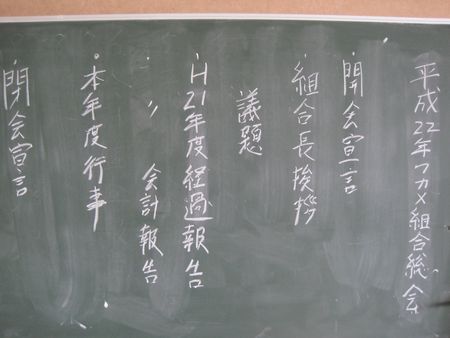 平成22年ワカメ組合総会
・開会宣言
・組合長挨拶
議題
・H21年度経過報告
・〃 会計報告
・本年度行事
・閉会宣言